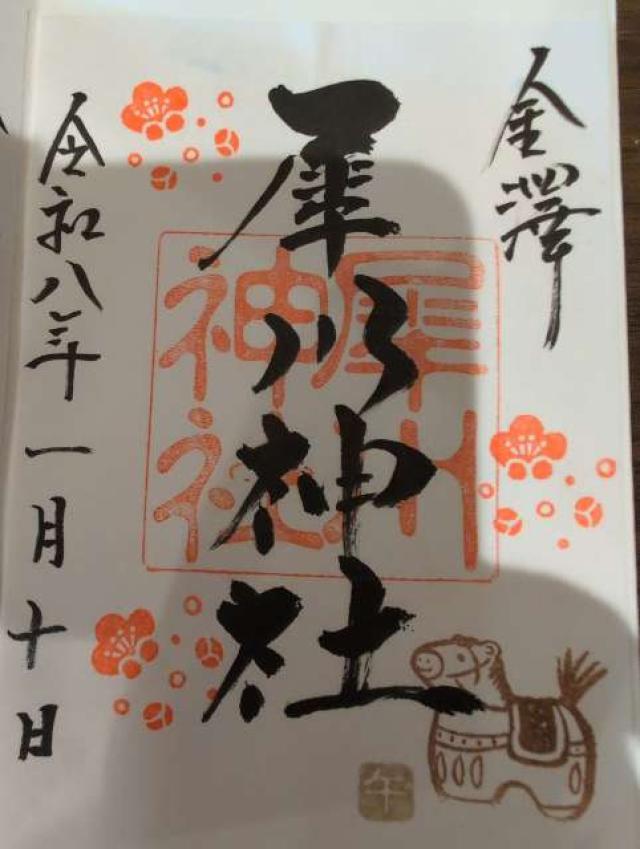 金澤
犀川神社
犀川
神社
令和八年一月十日
午